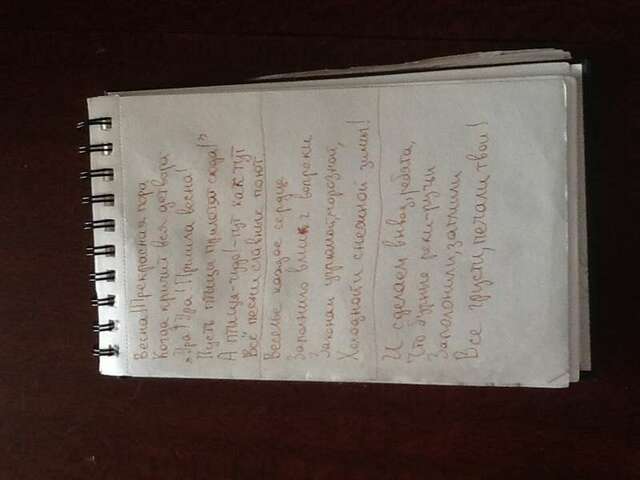 Весна! Прекрасная пора
Когда кричит вся детвора
„Ура! Ура! Пришла весна!
Пусть птицы прилетят сюда!"
А птица-чудо!-тут как тут
Всё песни славные поют
Веселье каждое сердце
Заполнило вмиг вопреки
Законам угрюмой, морозной,
Холодной и снежной зимы!
И сделаем вывод, ребята,
Что бурные реки-ручьи
Заполонили, затмили
Все грусти, печали твои!